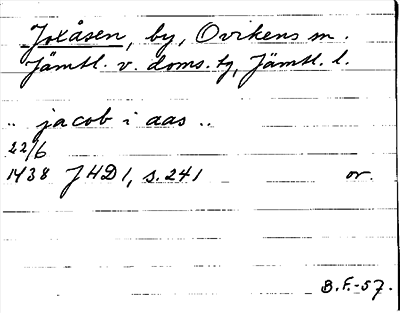 Joxåsen, by, Ovikens sn.
Jämtl. v. doms. tg, Jämtl. l.
.. jacob i aas ..
22/6
1438 JHD1, s. 241 or.
B.F.-57.